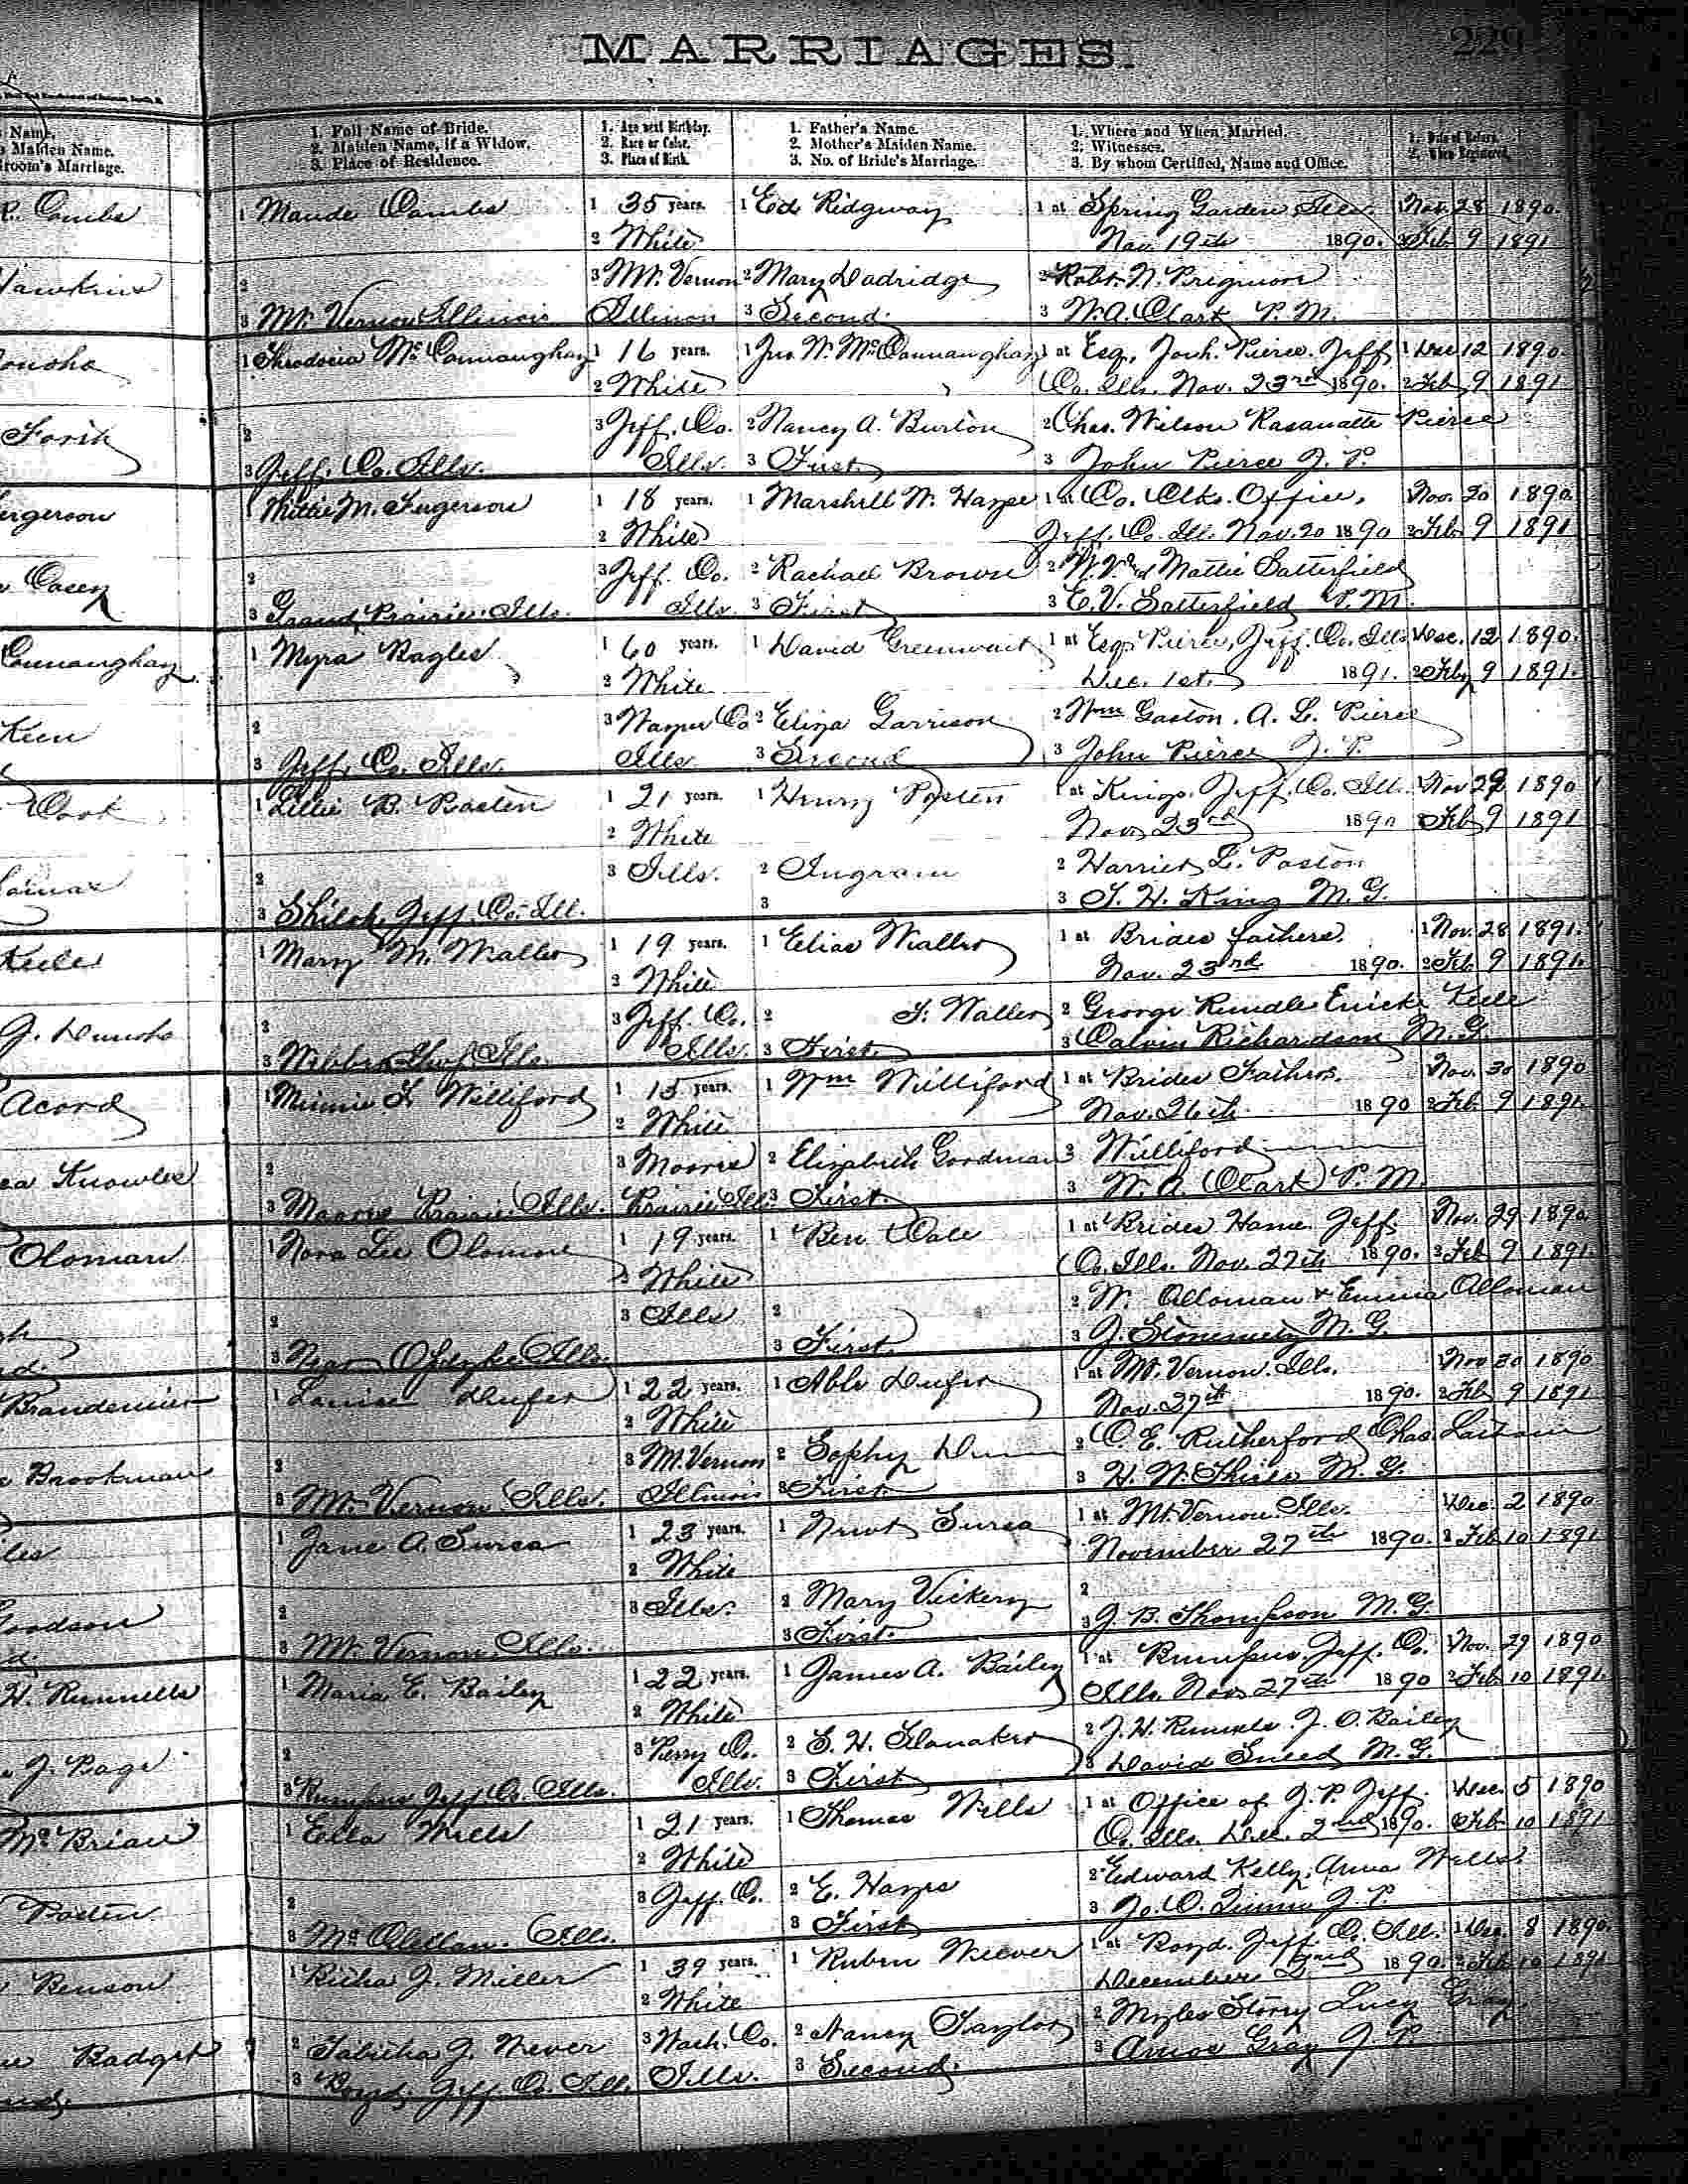 MARRIAGES.
229
Name.
Maiden Name.
room's Marriage.
1. Full Name of Bride.
2. Maiden Name, if a Widow.
3. Place of Residence.
1. Age next Birthday.
2. Race or Color.
3. Place of Birth.
1. Father's Name.
2. Mother's Maiden Name.
3. No. of Bride's Marriage.
1. Where and When Married.
2. Witnesses.
3. By whom Certified, Name and Office.
1. Date of Return.
2. When Registered.
Combs 1 Maude Combs 1 35 years. 1 Ed Ridgway 1 at Spring Garden, Ills. Nov. 28 1890.
2 White Nov. 19th 1890. 2 Feb 9 1891
Hawkins 2 3 Mt. Vernon 2 Mary Dodridge 2 Robt. N. Prigmore
3 Mt. Vernon Illinois Illinois 3 Second. 3 W. A. Clark P. M.
Donoho 1 Theodocia McConnaughay 1 16 years. 1 Jno. W. McConnaughay 1 at Esq. Jonh. Pierce. Jeff 1 Dec 12 1890.
2 White Co. Ills. Nov. 23rd 1890. 2 Feb 9 1891
2 3 Jeff. Co. 2 Nancy A. Burton 2 Chas. Wilson Rasanatte Pierce
3 Jeff. Co. Ills. Ills. 3 First 3 John Pierce J. P.
ergerson Mittie M. Fugerson 1 18 years. 1 Marshill W. Hayse 1 at Co. Clks. Office, Nov. 20 1890.
2 White Jeff. Co. Ill. Nov. 20 1890 2 Feb 9 1891
Casey 2 3 Jeff. Co. 2 Rachael Brown 2 Mattie Satterfield
3 Grand Prairie. Ills. Ills. 3 First 3 E. V. Satterfield P. M.
Connaughay 1 Myra Bagles 1 60 years. 1 David Greenwait 1 at Esq. Pierce, Jeff. Co. Ills Dec. 12 1890.
2 White Dec. 1st. 1891. 2 Feby 9 1891.
Keen 2 3 Co 2 Eliza Garrison 2 Wm Gaston. A. L. Pierce
3 Jeff. Co. Ills. Ills. 3 Second 3 John Pierce J. P.
Cook 1 Lillie B. Pasten 1 21 years. 1 Henry Posten 1 at Kings, Jeff. Co. Ill. Nov 29 1890
2 White Nov 23rd 1890 2 Feb 9 1891
2 3 Ills. 2 Ingram 2 Harriet L. Poston
3 Shiloh, Jeff. Co. Ill. 3 3 T. H. King M. G.
Keele 1 Mary M. Waller 1 19 years. 1 Elias Waller 1 at Brides fathers. 1 Nov. 28 1891.
2 White Nov. 23rd 1890. 2 Feb. 9 1891.
J. Donoho 2 3 Jeff. Co. 2 F. Waller 2 George Rundle Keele
3 Webber Twp. Ills. Ills. 3 First. 3 Calvin Richardson M. G.
Acord 1 Minnie F. Williford 1 15 years. 1 Wm Williford 1 at Brides Fathers. Nov. 30 1890
2 White Nov. 26th 1890 2 Feb. 9 1891.
Knowles 2 3 Moores 2 Elizabeth Goodman 2 Williford
3 Moores Prairie Ills. Prairie Ill. 3 First. 3 W. A. Clark P. M.
Oloman 1 Nora Lee Olomon 1 19 years. 1 Ben Cole 1 at Brides Home Jeff. Nov. 29 1890
2 White Co. Ills. Nov. 27th 1890. 2 Feb 9 1891
2 3 Ills 2 2 W. Alloman & Emma Alloman
3 Near Opdyke Ills. 3 First. 3 J. M. G.
1 Louise Dufer 1 22 years. 1 Able Dufer 1 at Mt. Vernon. Ills. Nov 30 1890
2 White Nov. 27th 1890. 2 Feb 9 1891
Brookman 2 3 Mt. Vernon 2 Sophy 2 C. E. Rutherford, Chas.
3 Mt. Vernon, Ills. Illinois 3 First. 3 M. G.
1 Jane A. Surca 1 23 years. 1 Newt Surca 1 at Mt. Vernon. Ills. Dec. 2 1890
2 White November 27th 1890. 2 Feb 10 1891
Goodson 2 3 Ills. 2 Mary Vickery 2
3 Mt. Vernon, Ills. 3 First. 3 J. B. Thompson M. G.
H. Runnells 1 Maria E. Bailey 1 22 years. 1 James A. Bailey 1 at Bumpus. Jeff. Co. Nov. 29 1890
2 White Ills. Nov 27th 1890 2 Feb 10 1891.
J. Page 2 3 Perry Co. 2 S. H. Slanaker 2 J. H. Runnels. J. O. Bailey
3 Bumpus Jeff Co. Ills. Ills. 3 First 3 David Sneed M. G.
McBrian 1 Ella Wells 1 21 years. 1 Thomas Wells 1 at Office of J. P. Jeff. Dec. 5 1890
2 White Co. Ills. Dec. 2nd 1890. Feb 10 1891
Posten 2 3 Jeff. Co. 2 E. Hayes 2 Edward Kelly, Anna Wells
3 McClellan. Ills. 3 First 3 Jo. O. Quinn J. P.
Benson 1 Bitha J. Miller 1 39 years. 1 Ruben Wever 1 at Boyd. Jeff. Co. Ill. 1 Dec. 8 1890.
2 White December 2nd 1890. 2 Feb 10 1891
Badget 2 Tabitha J. Wever 3 Wash. Co. 2 Nancy Taylor 2 Myles Storry Lucy Gray
3 Boyd, Jeff. Co. Ill. Ills. 3 Second. 3 Amos Gray J. P.